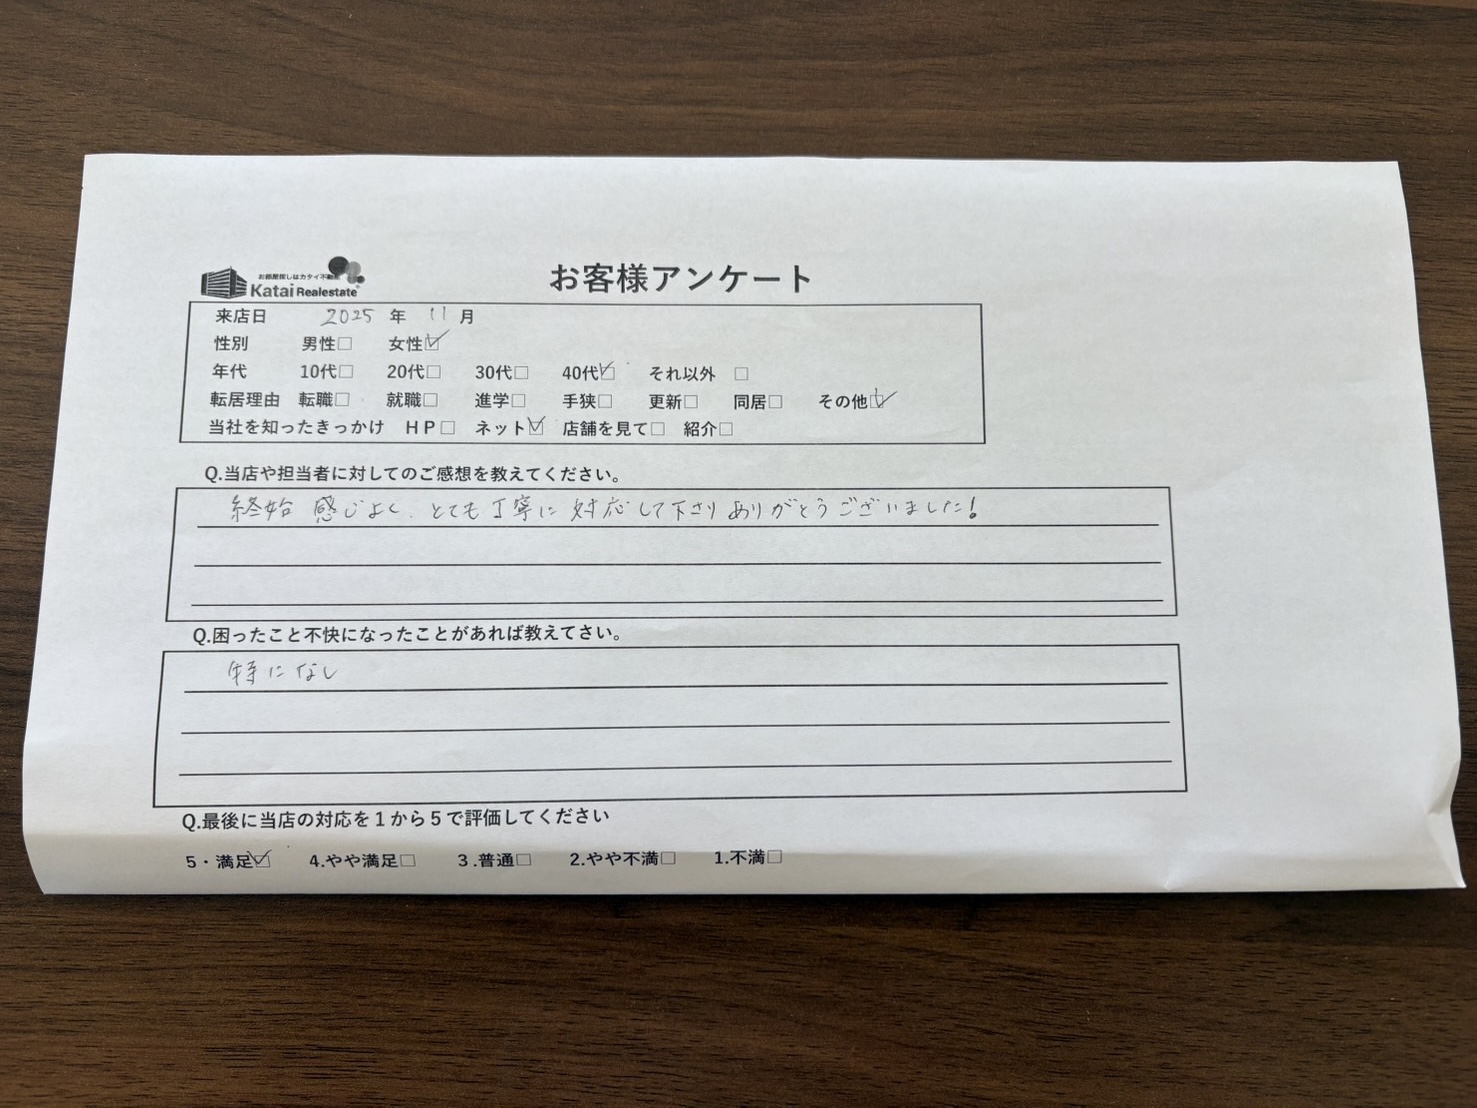 お部屋探しはカタイ不動産
Katai Realestate
お客様アンケート
来店日 2025 年 11 月
性別 男性□ 女性☑
年代 10代□ 20代□ 30代□ 40代☑ それ以外 □
転居理由 転職□ 就職□ 進学□ 手狭□ 更新□ 同居□ その他☑
当社を知ったきっかけ HP□ ネット☑ 店舗を見て□ 紹介□
Q.当店や担当者に対してのご感想を教えてください。
終始 感じよく、とても丁寧に対応して下さりありがとうございました!
Q.困ったこと不快になったことがあれば教えてさい。
特になし
Q.最後に当店の対応を1から5で評価してください
5・満足☑ 4.やや満足□ 3.普通□ 2.やや不満□ 1.不満□